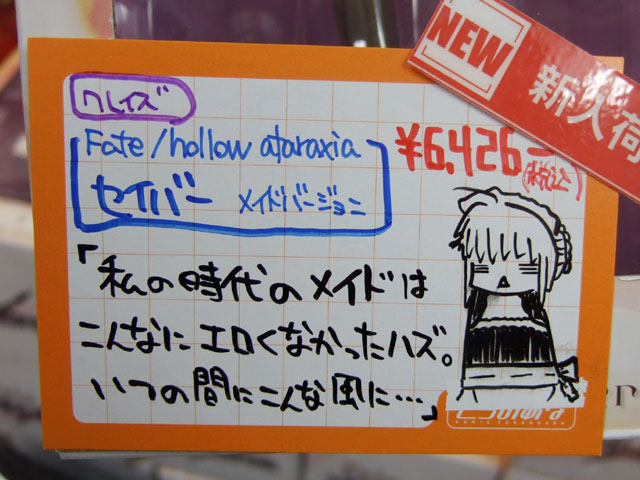 NEW
新入荷
クレイズ
Fate/hollow ataraxia
¥6,426-
(税込)
セイバー メイドバージョン
「私の時代のメイドは
こんなにエロくなかったハズ。
いつの間にこんな風に…」